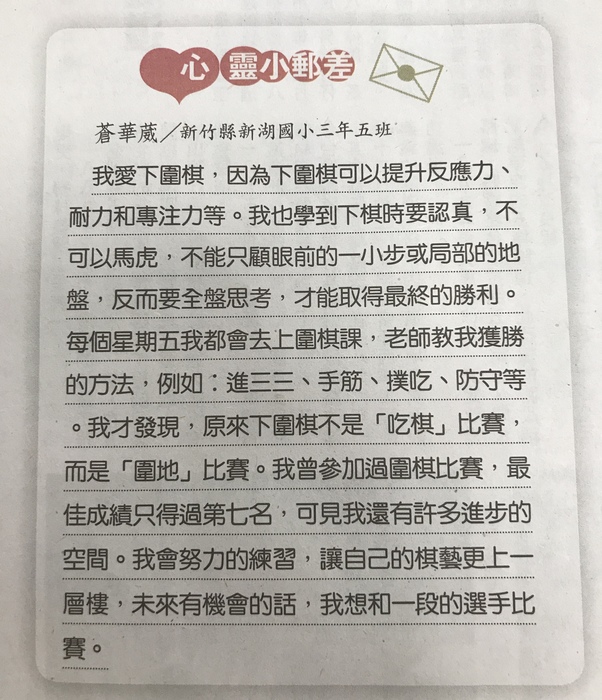 心靈小郵差
蒼華葳／新竹縣新湖國小三年五班
我愛下圍棋，因為下圍棋可以提升反應力、
耐力和專注力等。我也學到下棋時要認真，不
可以馬虎，不能只顧眼前的一小步或局部的地
盤，反而要全盤思考，才能取得最終的勝利。
每個星期五我都會去上圍棋課，老師教我獲勝
的方法，例如：進三三、手筋、撲吃、防守等
。我才發現，原來下圍棋不是「吃棋」比賽，
而是「圍地」比賽。我曾參加過圍棋比賽，最
佳成績只得過第七名，可見我還有許多進步的
空間。我會努力的練習，讓自己的棋藝更上一
層樓，未來有機會的話，我想和一段的選手比
賽。